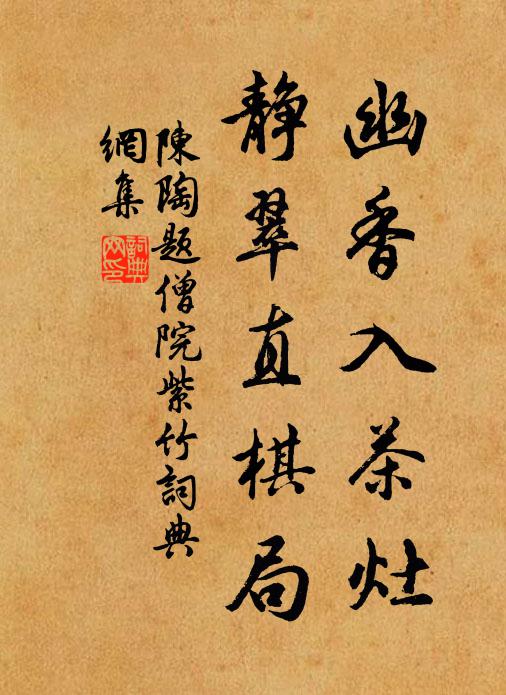 幽香入茶灶
静翠直棋局
陳陶题僧院紫竹詞典
網集
詞典
网印